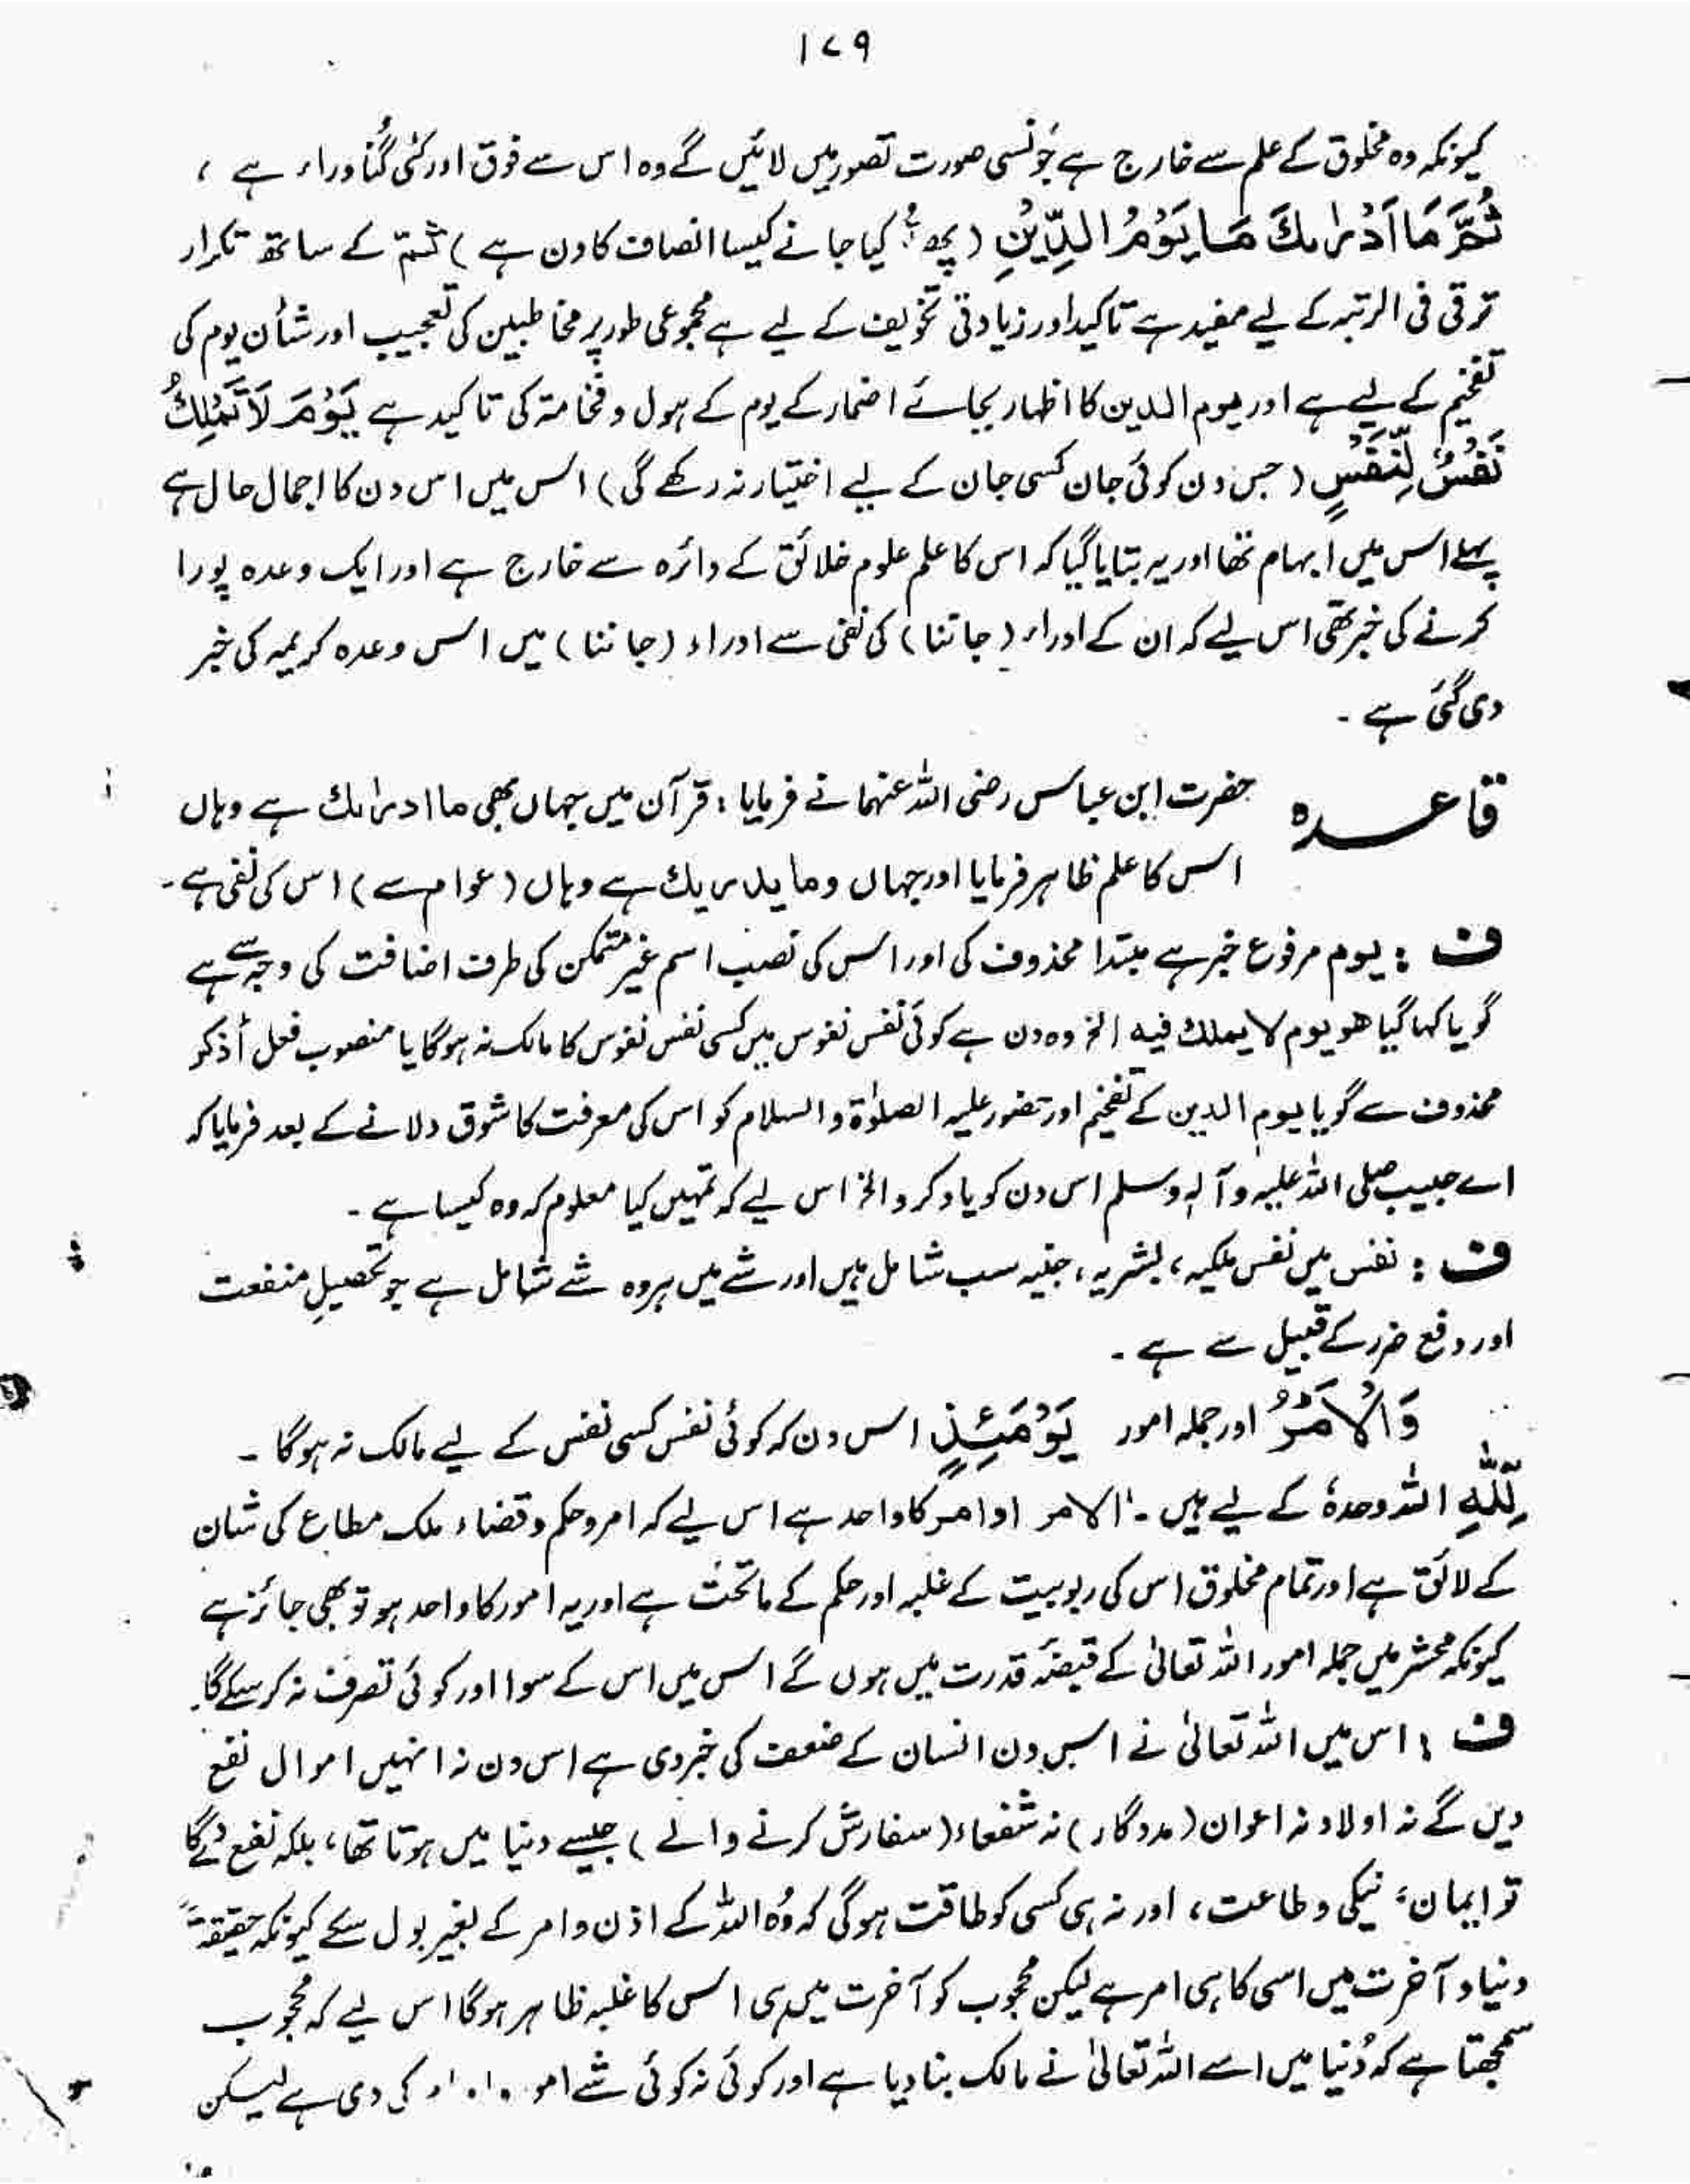 ۱۷۹
کیونکہ وہ مخلوق کے علم سے خارج ہے جونسی صورت تصور میں لائیں گے وہ اس سے فوق اور کئی گُنا وراء ہے ،
ثُمَّ مَا اَدْرٰىكَ مَا يَوْمُ الدِّيْنِ ( پھر تُو کیا جانے کیسا انصاف کا دن ہے ) ثمّ کے ساتھ تکرار
ترقی فی الرتبہ کے لیے مفید ہے تاکید اور زیادتی تخویف کے لیے ہے مجموعی طور پر مخاطبین کی تعجیب اور شأن یوم کی
تفخیم کے لیے ہے اور یوم الدین کا اظہار بجائے اضمار کے یوم کے ہول و فخامۃ کی تاکید ہے يَوْمَ لَا تَمْلِكُ
نَفْسٌ لِّنَفْسٍ ( جس دن کوئی جان کسی جان کے لیے اختیار نہ رکھے گی ) اس میں اس دن کا اجمال حال ہے
پہلے اس میں ابہام تھا اور یہ بتایا گیا کہ اس کا علم علوم خلائق کے دائرہ سے خارج ہے اور ایک وعدہ پورا
کرنے کی خبر تھی اس لیے کہ ان کے ادراء ( جاننا ) کی نفی سے ادراء ( جاننا ) میں اس وعدہ کریمہ کی خبر
دی گئی ہے ۔
قاعدہ حضرت ابن عباس رضی اللہ عنہما نے فرمایا : قرآن میں جہاں بھی ما ادرٰىك ہے وہاں
اس کا علم ظاہر فرمایا اور جہاں وما يدريك ہے وہاں ( عوام سے ) اس کی نفی ہے ۔
ف : یوم مرفوع خبر ہے مبتدا محذوف کی اور اس کی نصب اسم غیر متمکن کی طرف اضافت کی وجہ سے ہے
گویا کہا گیا هو يوم لا يملك فيه الخ وہ دن ہے کوئی نفس نفوس میں کسی نفس نفوس کا مالک نہ ہوگا یا منصوب فعل أذكر
محذوف سے گویا یوم الدین کے تفخیم اور حضور علیہ الصلوٰۃ والسلام کو اس کی معرفت کا شوق دلانے کے بعد فرمایا کہ
اے حبیب صلی اللہ علیہ وآلہٖ وسلم اس دن کو یاد کرو الخ اس لیے کہ تمہیں کیا معلوم کہ وہ کیسا ہے ۔
ف : نفس میں نفس ملکیہ ، بشریہ ، جنیہ سب شامل ہیں اور شے میں ہر وہ شے شامل ہے جو تحصیلِ منفعت
اور دفع ضرر کے قبیل سے ہے ۔
وَالْاَمْرُ اور جملہ امور يَوْمَئِذٍ اس دن کہ کوئی نفس کسی نفس کے لیے مالک نہ ہوگا ۔
لِّلّٰهِ اللہ وحدہٗ کے لیے ہیں ۔ الامر اوامر کا واحد ہے اس لیے کہ امر و حکم و قضاء ملک مطاع کی شان
کے لائق ہے اور تمام مخلوق اس کی ربوبیت کے غلبہ اور حکم کے ماتحت ہے اور یہ امور کا واحد ہو تو بھی جائز ہے
کیونکہ محشر میں جملہ امور اللہ تعالیٰ کے قبضۂ قدرت میں ہوں گے اس میں اس کے سوا اور کوئی تصرف نہ کر سکے گا ۔
ف : اس میں اللہ تعالیٰ نے اس دن انسان کے ضعف کی خبر دی ہے اس دن نہ انہیں اموال نفع
دیں گے نہ اولاد نہ اعوان ( مددگار ) نہ شفعاء ( سفارش کرنے والے ) جیسے دنیا میں ہوتا تھا ، بلکہ نفع دے گا
تو ایمان ، نیکی و طاعت ، اور نہ ہی کسی کو طاقت ہو گی کہ وُہ اللہ کے اذن و امر کے بغیر بول سکے کیونکہ حقیقۃً
دنیا و آخرت میں اسی کا ہی امر ہے لیکن محجوب کو آخرت میں ہی اس کا غلبہ ظاہر ہوگا اس لیے کہ محجوب
سمجھتا ہے کہ دُنیا میں اسے اللہ تعالیٰ نے مالک بنا دیا ہے اور کوئی نہ کوئی شے کی دی ہے لیکن